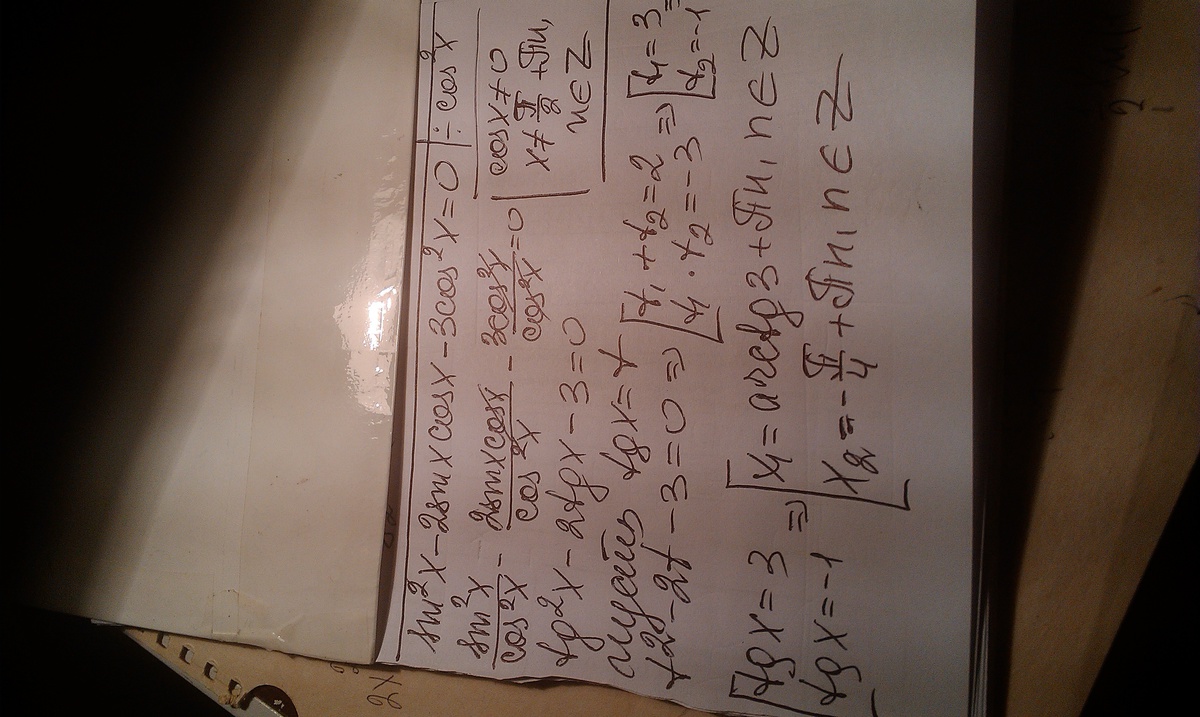 sin²x - 2sinxcosx - 3cos²x = 0 | : cos²x
sin²x/cos²x - 2sinxcosx/cos²x - 3cos²x/cos²x = 0
cosx ≠ 0
x ≠ π/2 + πn,
n ∈ Z
tg²x - 2tgx - 3 = 0
пусть tgx = t
t² - 2t - 3 = 0 ⇒ [t₁ + t₂ = 2
t₁ · t₂ = -3 ⇒ [t₁ = 3
t₂ = -1 =
[tgx = 3
tgx = -1 ⇒ [x₁ = arctg3 + πn, n ∈ Z
x₂ = -π/4 + πn, n ∈ Z
2x